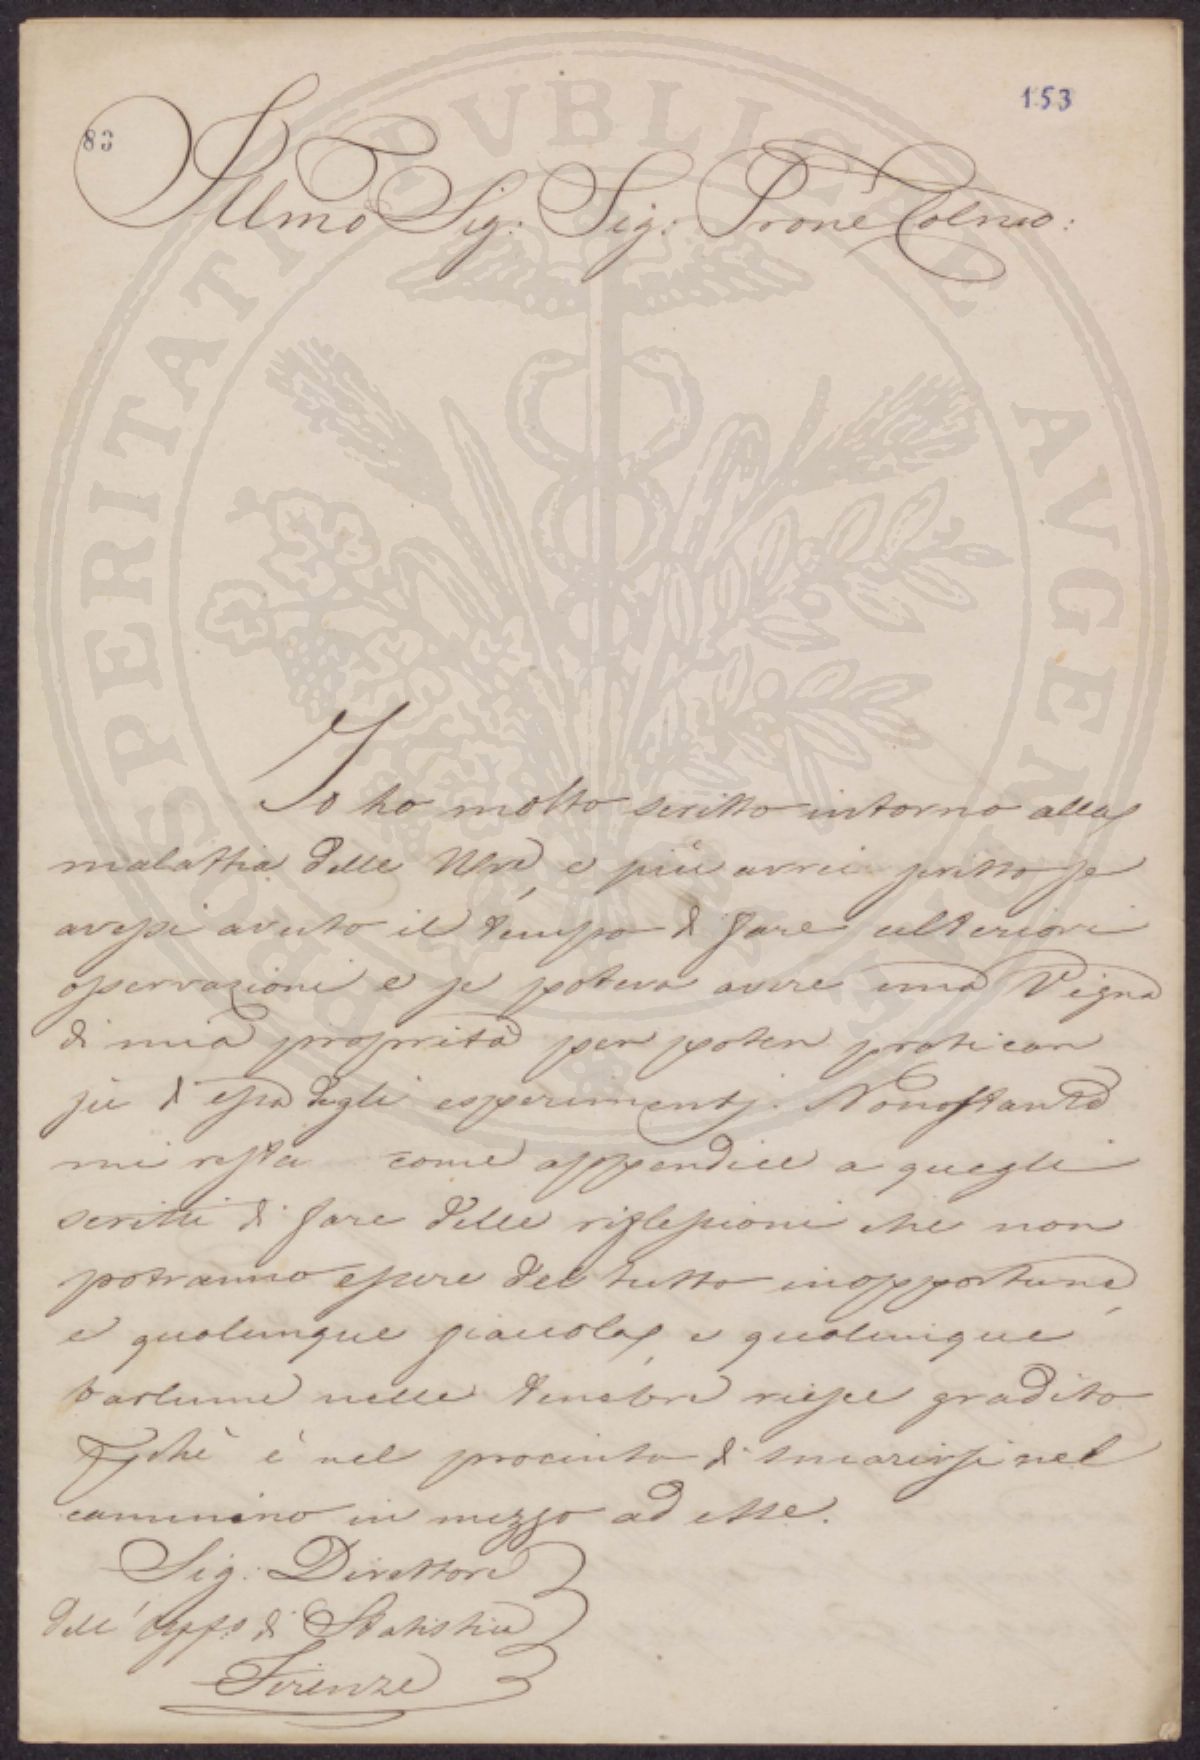 153
83
Illmo Sig: Sig: Prone Colmo:
Io ho molto scritto intorno alla
malattia delle Uve, e più avrei scritto se
avessi avuto il tempo di fare ulteriori
osservazioni e se poteva avere una Vigna
di mia proprietà per poter praticare
su d'essa degli esperimenti. Nonostante
mi resta come appendice a quegli
scritti di fare delle riflessioni che non
potranno essere del tutto inopportune,
e qualunque fiaccola, e qualunque
barlume nelle tenebre riesce gradito
è nel procinto di smarirsi nel
cammino in mezzo ad esse.
Sig: Direttore
dell'Uffo di Statistica
Firenze
PROSPERITATI PVBLICAE AVGENDAE